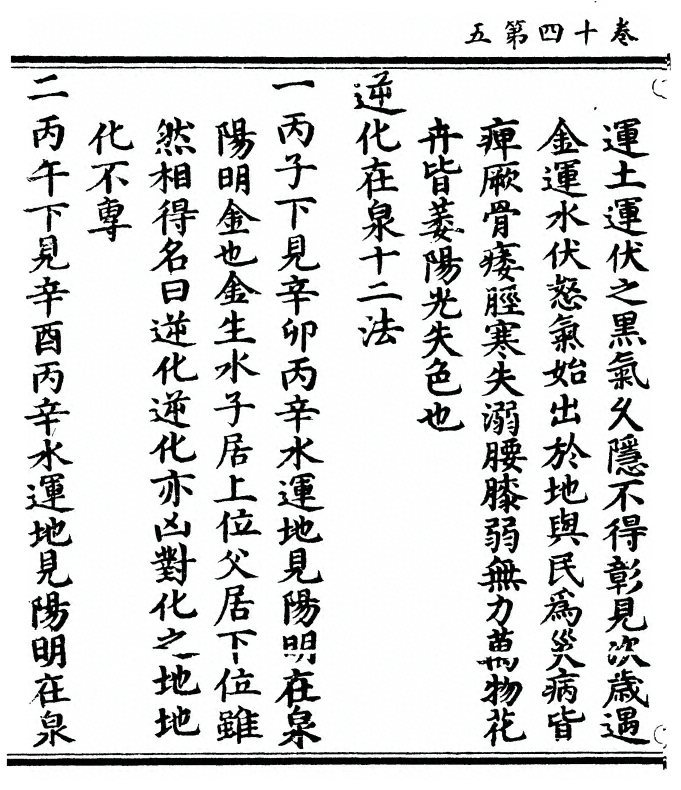 卷十四第五
運土運伏之黑氣久隱不得彰見次歲遇
金運水伏怒氣始出於地與民為災病皆
痺厥骨痿脛寒失溺腰膝弱無力萬物花
卉皆萎陽光失色也
逆化在泉十二法
一丙子下見辛卯丙辛水運地見陽明在泉
陽明金也金生水子居上位父居下位雖
然相得名曰逆化逆化亦凶對化之地地
化不專
二丙午下見辛酉丙辛水運地見陽明在泉